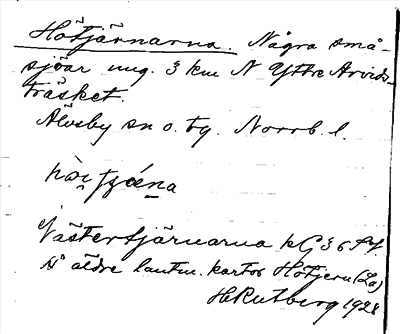 Hötjärnarna. Några små-
sjöar ung. 3 km N Yttre Arvids-
träsket.
Älvsby sn o. tg. Norrb. l.
Västertjärnarna kG 36
äldre lantm. kartor Hötjern (La)
H Rutberg 1928